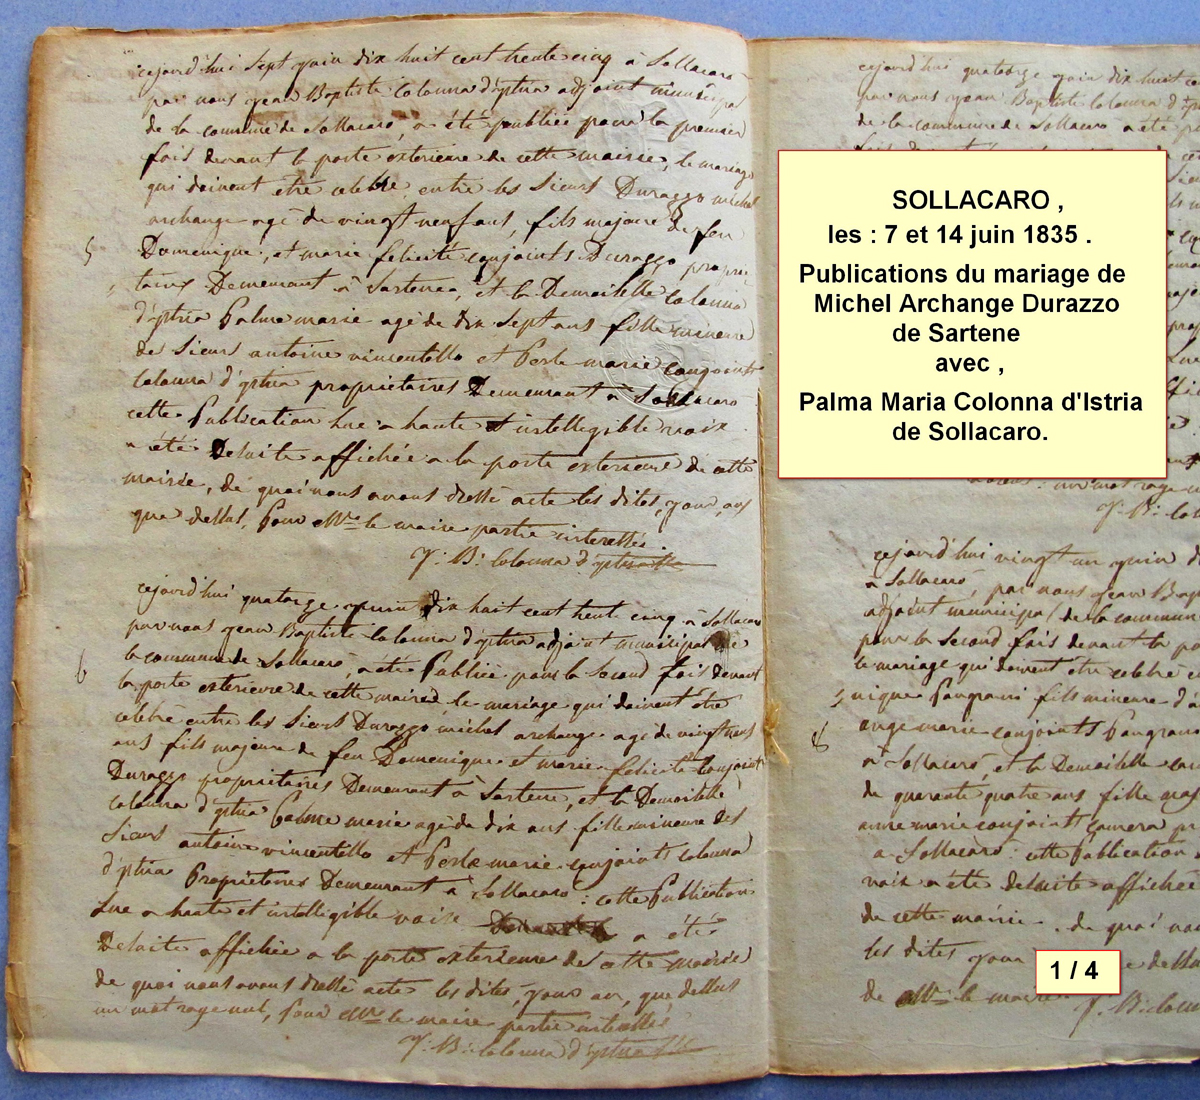 cejourd'hui Sept juin dix huit cent trente cinq à Sollacaro
par nous jean Baptiste Colonna d'jstria adjoint municipal
de la commune de Sollacaro, a été publiée pour la premier
fois devant la porte exterieure de cette mairie, le mariage
qui doivent etre celebre entre les Sieurs Durazzo michel
archange agé de vingt neuf ans, fils majeure de feu
5
Domenique, et marie felicité conjoints Durazzo proprié
taires Demeurant à Sartene, et la Demoiselle Colonna
d'jstria Palma marie agé de dix Sept ans fille mineure
des Sieurs antoine vincentello et Perle marie conjoints
Colonna d'jstria proprietaires Demeurant à Sollacaro
cette Publication lue a haute et intelligible voix
a été Desuite affichée a la porte exterieure de cette
mairie, de quoi nous avons dressé acte les dites, jour, an
que dessus, pour Mr le maire partie interessée
J. B. Colonna d'jstria
cejourd'hui quatorze juin dix huit cent trente cinq à Sollacaro
par nous jean Baptiste Colonna d'jstria adjoint municipal de
la commune de Sollacaro, a été Publiée pour la Second fois devant
6
la porte exterieure de cette mairie, le mariage qui doivent être
celebré entre les Sieurs Durazzo michel archange agé de vingt neuf
ans fils majeure de feu Domenique et marie felicité Conjoints
Durazzo proprietaires Demeurant à Sartene, et la Demoiselle
Colonna d'jstria Palma marie agé de dix ans fille mineure des
Sieurs antoine vincentello et Perle marie conjoints Colonna
d'jstria Proprietaires Demeurant à Sollacaro : cette Publication
Lue a haute et intelligible voix a été
Desuite affichée a la porte exterieure de cette mairie
de quoi nous avons dressé acte les dites, jour an, que dessus
un mot raye nul, pour Mr le maire partie interessée
J. B. Colonna d'jstria
cejourd'hui quatorze juin dix huit ce
par nous jean Baptiste Colonna d'j
de la commune de Sollacaro a été p
SOLLACARO ,
les : 7 et 14 juin 1835 .
Publications du mariage de
Michel Archange Durazzo
de Sartene
avec ,
Palma Maria Colonna d'Istria
de Sollacaro.
un mot raye
J. B. Colo
cejourd'hui vingt un juin d
à Sollacaro, par nous jean Bap
adjoint municipal de la commun
pour la Second fois devant la po
le mariage qui doivent etre celebré e
nique Pangrani fils mineure d'a
8
ange marie conjoints Pangrani
à Sollacaro, et la Demoiselle
de quarente quatre ans fille maj
anne marie conjoints
a Sollacaro : cette Publication
voix a été desuite affichée
de cette mairie . de quoi nou
les dites jour
1 / 4
e dessu
de Mr le maire
J. B. Colonn